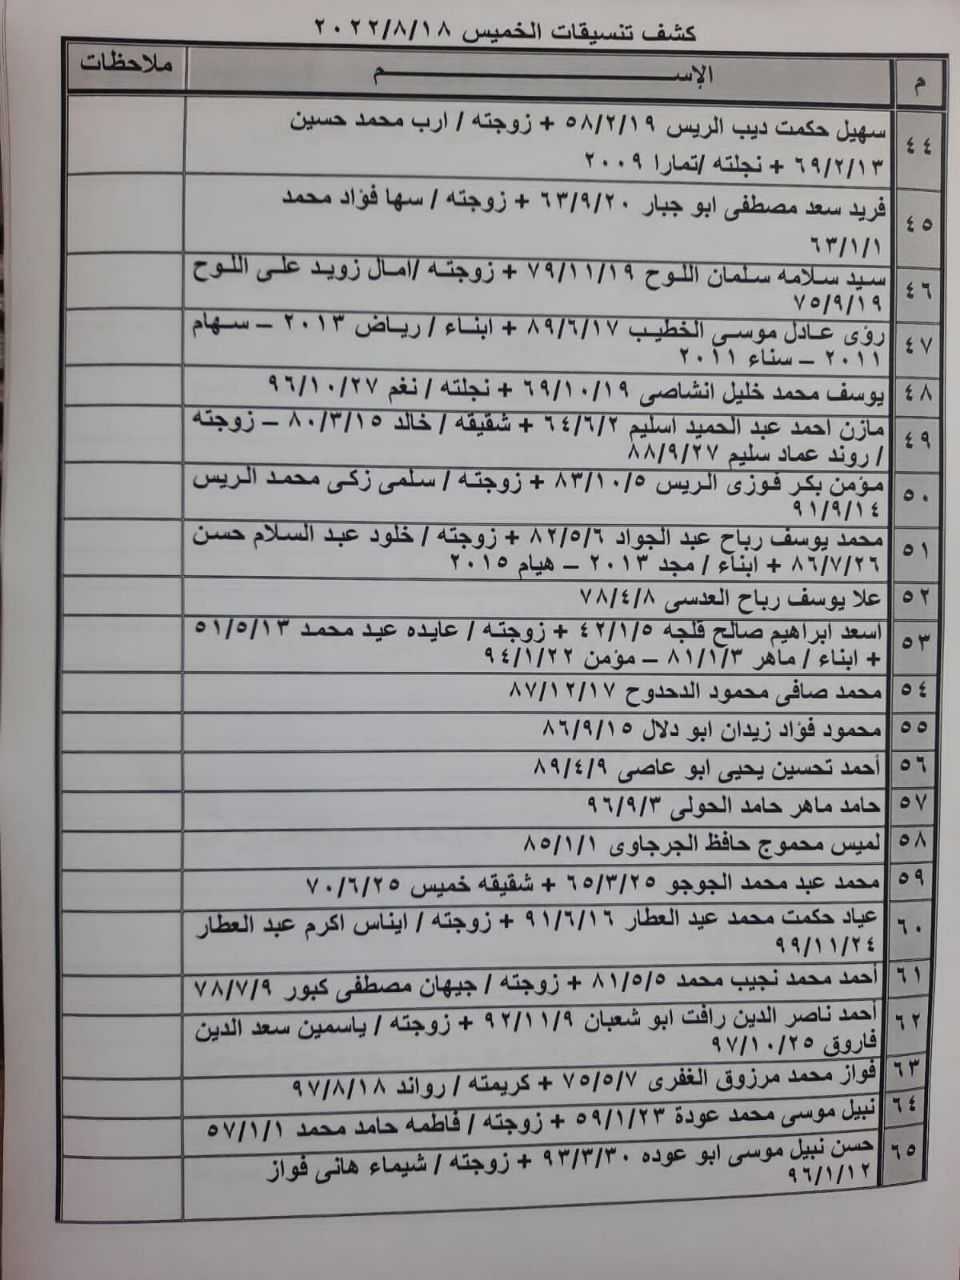 كشف تنسيقات الخميس ٢٠٢٢/٨/١٨
م الإسم ملاحظات
٤٤ سهيل حكمت ديب الريس ٥٨/٢/١٩ + زوجته / ارب محمد حسين
٦٩/٢/١٣ + نجلته /تمارا ٢٠٠٩
٤٥ فريد سعد مصطفى ابو جبار ٦٣/٩/٢٠ + زوجته / سها فؤاد محمد
٦٣/١/١
٤٦ سيد سلامه سلمان اللوح ٧٩/١١/١٩ + زوجته /امال زويد على اللوح
٧٥/٩/١٩
٤٧ رؤى عادل موسى الخطيب ٨٩/٦/١٧ + ابناء / رياض ٢٠١٣ – سهام
٢٠١١ – سناء ٢٠١١
٤٨ يوسف محمد خليل انشاصى ٦٩/١٠/١٩ + نجلته / نغم ٩٦/١٠/٢٧
٤٩ مازن احمد عبد الحميد اسليم ٦٤/٦/٢ + شقيقه / خالد ٨٠/٣/١٥ – زوجته
/ روند عماد سليم ٨٨/٩/٢٧
٥٠ مؤمن بكر فوزى الريس ٨٣/١٠/٥ + زوجته / سلمى زكى محمد الريس
٩١/٩/١٤
٥١ محمد يوسف رباح عبد الجواد ٨٢/٥/٦ + زوجته / خلود عبد السلام حسن
٨٦/٧/٢٦ + ابناء / مجد ٢٠١٣ – هيام ٢٠١٥
٥٢ علا يوسف رباح العدسى ٧٨/٤/٨
٥٣ اسعد ابراهيم صالح قلجه ٤٢/١/٥ + زوجته / عايده عيد محمد ٥١/٥/١٣
+ ابناء / ماهر ٨١/١/٣ – مؤمن ٩٤/١/٢٢
٥٤ محمد صافى محمود الدحدوح ٨٧/١٢/١٧
٥٥ محمود فؤاد زيدان ابو دلال ٨٦/٩/١٥
٥٦ أحمد تحسين يحيى ابو عاصى ٨٩/٤/٩
٥٧ حامد ماهر حامد الحولى ٩٦/٩/٣
٥٨ لميس محموج حافظ الجرجاوى ٨٥/١/١
٥٩ محمد عبد محمد الجوجو ٦٥/٣/٢٥ + شقيقه خميس ٧٠/٦/٢٥
٦٠ عياد حكمت محمد عيد العطار ٩١/٦/١٦ + زوجته / ايناس اكرم عبد العطار
٩٩/١١/٢٤
٦١ أحمد محمد نجيب محمد ٨١/٥/٥ + زوجته / جيهان مصطفى كبور ٧٨/٧/٩
٦٢ أحمد ناصر الدين رافت ابو شعبان ٩٢/١١/٩ + زوجته / ياسمين سعد الدين
فاروق ٩٧/١٠/٢٥
٦٣ فواز محمد مرزوق الغفرى ٧٥/٥/٧ + كريمته / رواند ٩٧/٨/١٨
٦٤ نبيل موسى محمد عودة ٥٩/١/٢٣ + زوجته / فاطمه حامد محمد ٥٧/١/١
٦٥ حسن نبيل موسى ابو عوده ٩٣/٣/٣٠ + زوجته / شيماء هانى فواز
٩٦/١/١٢